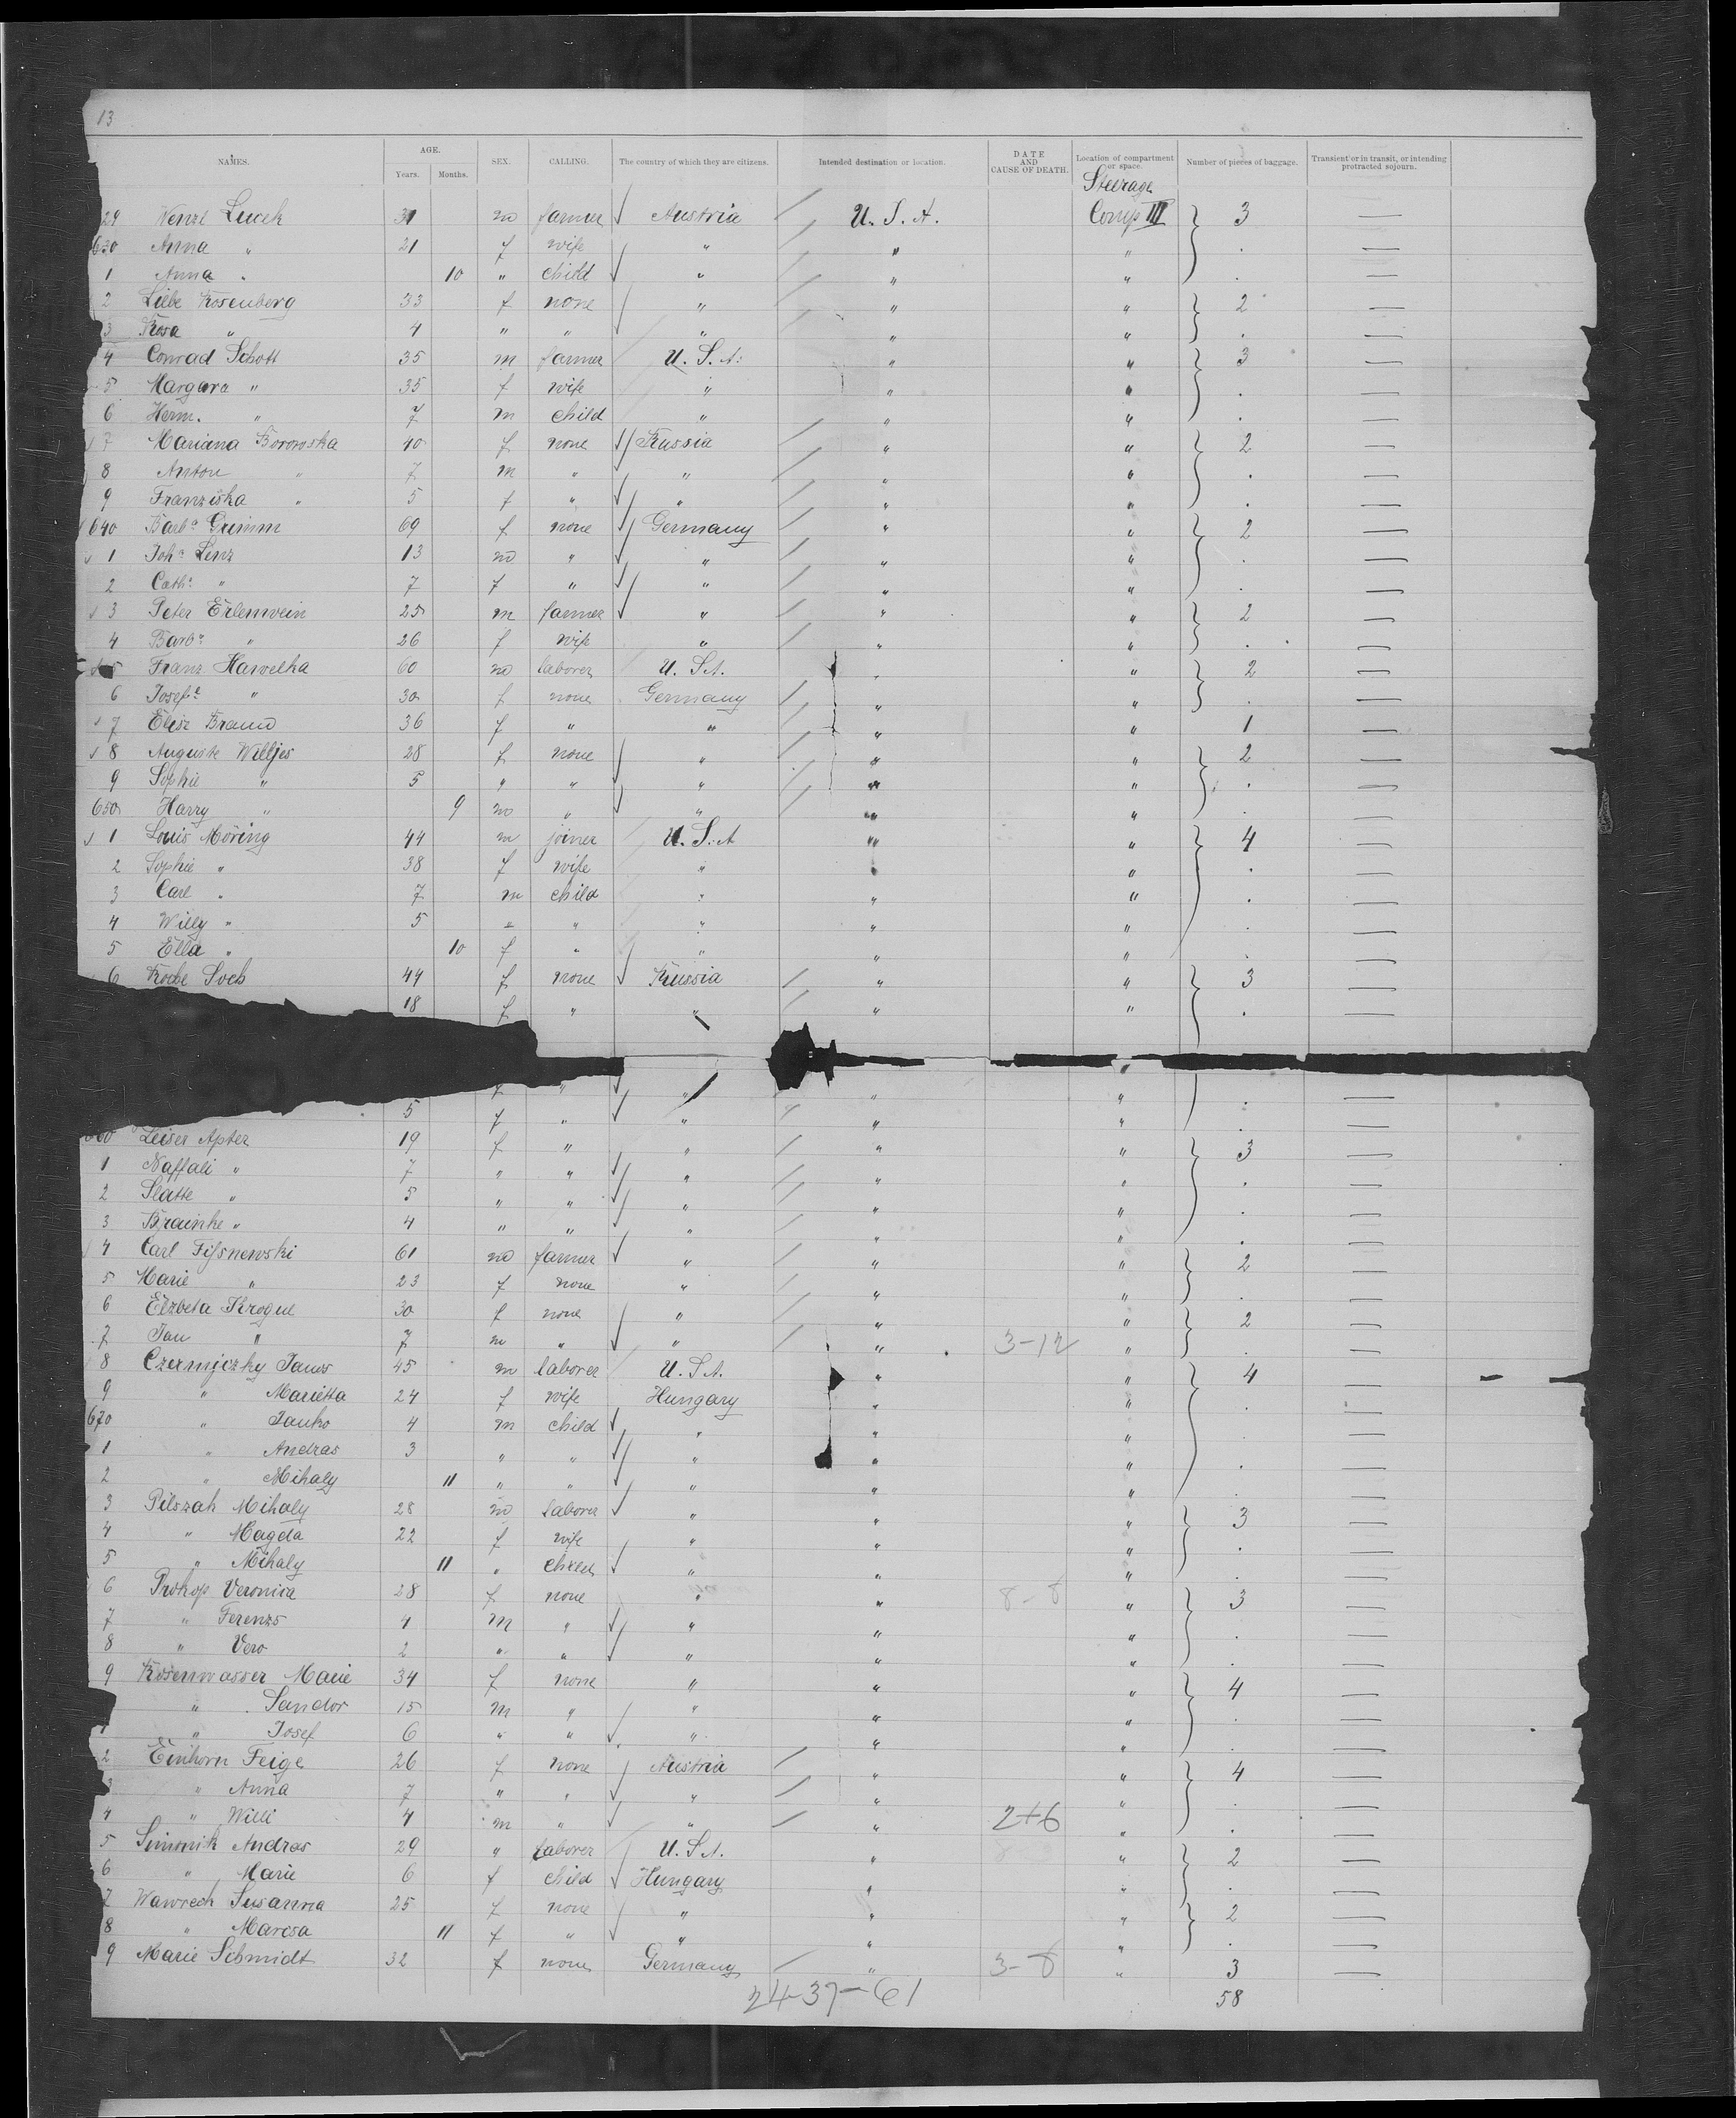 13
NAMES. AGE. Years. Months. SEX. CALLING. The country of which they are citizens. Intended destination or location. DATE AND CAUSE OF DEATH. Location of compartment or space. Number of pieces of baggage. Transient or in transit, or intending protracted sojourn.
Steerage
29 Wenzl Lucek 31 m farmer Austria U. S. A. Comp III 3 —
630 Anna " 21 f wife " " " . —
1 Anna " 10 " child " " " . —
2 Liebe Rosenberg 33 f none " " " 2 —
3 Rosa " 4 " " " " " . —
4 Conrad Schott 35 m farmer U. S. A. " " 3 —
5 Margara " 35 f wife " " " . —
6 Herm. " 7 m child " " " . —
7 Mariana Borowska 40 f none Russia " " 2 —
8 Anton " 7 m " " " " . —
9 Franziska " 5 f " " " " . —
640 Barba Grimm 69 f none Germany " " 2 —
1 Joha Lenz 13 m " " " " . —
2 Catha " 7 f " " " " . —
3 Peter Erlenwein 25 m farmer " " " 2 —
4 Barba " 26 f wife " " " . —
5 Franz Hawelka 60 m laborer U. S. A. " " 2 —
6 Josefe " 30 f none Germany " " . —
7 Elise Braun 36 f " " " " 1 —
8 Auguste Willjes 28 f none " " " 2 —
9 Sophie " 5 " " " " " . —
650 Harry " 9 m " " " " . —
1 Louis Möring 44 m joiner U. S. A " " 4 —
2 Sophie " 38 f wife " " " . —
3 Carl " 7 m child " " " . —
4 Willy " 5 " " " " " . —
5 Ella " 10 f " " " " . —
6 Soch 44 f none Russia " " 3 —
18 f " " " " . —
"
f " " " " . —
5 f " " " " . —
Leiser Apter 19 f " " " " 3 —
1 Naftali " 7 " " " " " . —
2 Slatte " 5 " " " " " . —
3 Brainke " 4 " " " " " . —
4 Carl Fißnewski 61 m farmer " " " 2 —
5 Marie " 23 f none " " " . —
6 Elzbeta Krogul 30 f none " " " 2 —
7 Jan " 7 m " " " 3-12 " . —
8 Czermiczky Janos 45 m laborer U. S. A. " " 4 —
9 " Marietta 24 f wife Hungary " " . —
670 " Janko 4 m child " " " . —
1 " Andras 3 " " " " " . —
2 " Mihaly 11 " " " " " . —
3 Pilszah Mihaly 28 m laborer " " " 3 —
4 " Magda 22 f wife " " " . —
5 " Mihaly 11 " child " " " . —
6 Prokop Veronica 28 f none " " 8-8 " 3 —
7 " Ferenzs 4 m " " " " . —
8 " Vero 2 " " " " " . —
9 Rosenwasser Marie 34 f none " " " 4 —
" Sandor 15 m " " " " . —
1 " Josef 6 " " " " " . —
2 Einhorn Feige 26 f none Austria " " 4 —
3 " Anna 7 " " " " " . —
4 " Willi 4 m " " " 2+6 " . —
5 Simonik Andras 29 " laborer U. S. A. " " 2 —
6 " Marie 6 f child Hungary " " . —
7 Wawrech Susanna 25 f none " " " 2 —
8 " Marcsa 11 f " " " " . —
9 Marie Schmidt 32 f none Germany " 3-8 " 3 —
24-37-61 58